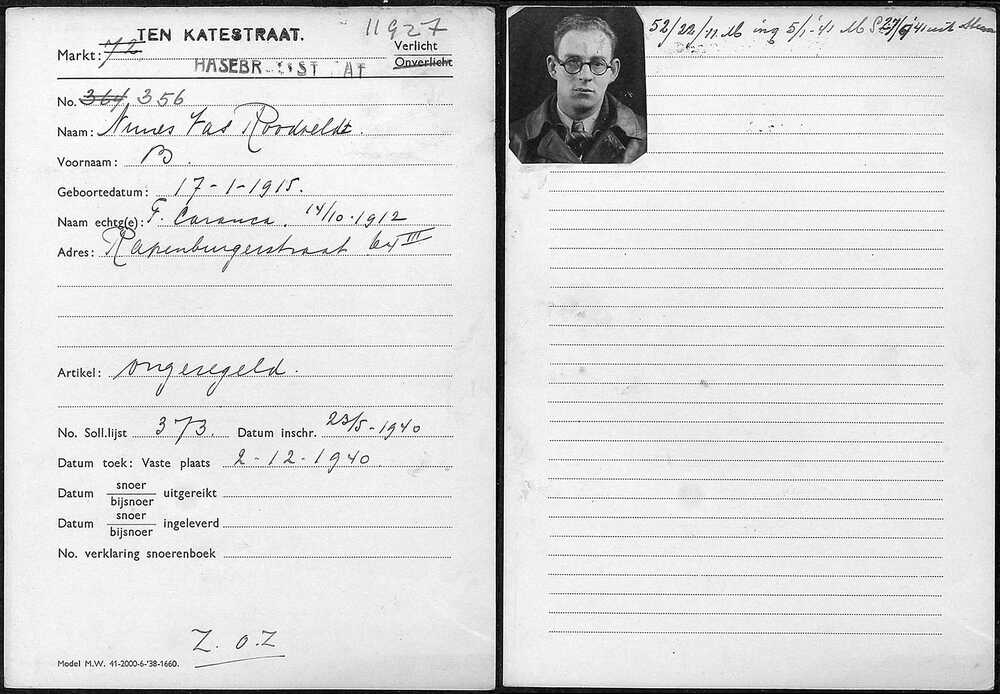 11927
TEN KATESTRAAT.
Markt: 72
Verlicht
Onverlicht
HASEBR ST AT
No. 364 356
Naam: Nunes Vas Roodveldt.
Voornaam: B.
Geboortedatum: 17-1-1915.
Naam echtg(e): F. Caranca. 14/10-1912
Adres: Rapenburgerstraat 64 III
Artikel: ongeregeld.
No. Soll.lijst 373. Datum inschr. 23/5-1940
Datum toek: Vaste plaats 2-12-1940.
Datum snoer/bijsnoer uitgereikt
Datum snoer/bijsnoer ingeleverd
No. verklaring snoerenboek
Z.o.Z
Model M.W. 41-2000-6-'38-1660.
52/22/11 M ing 5/1-41 M